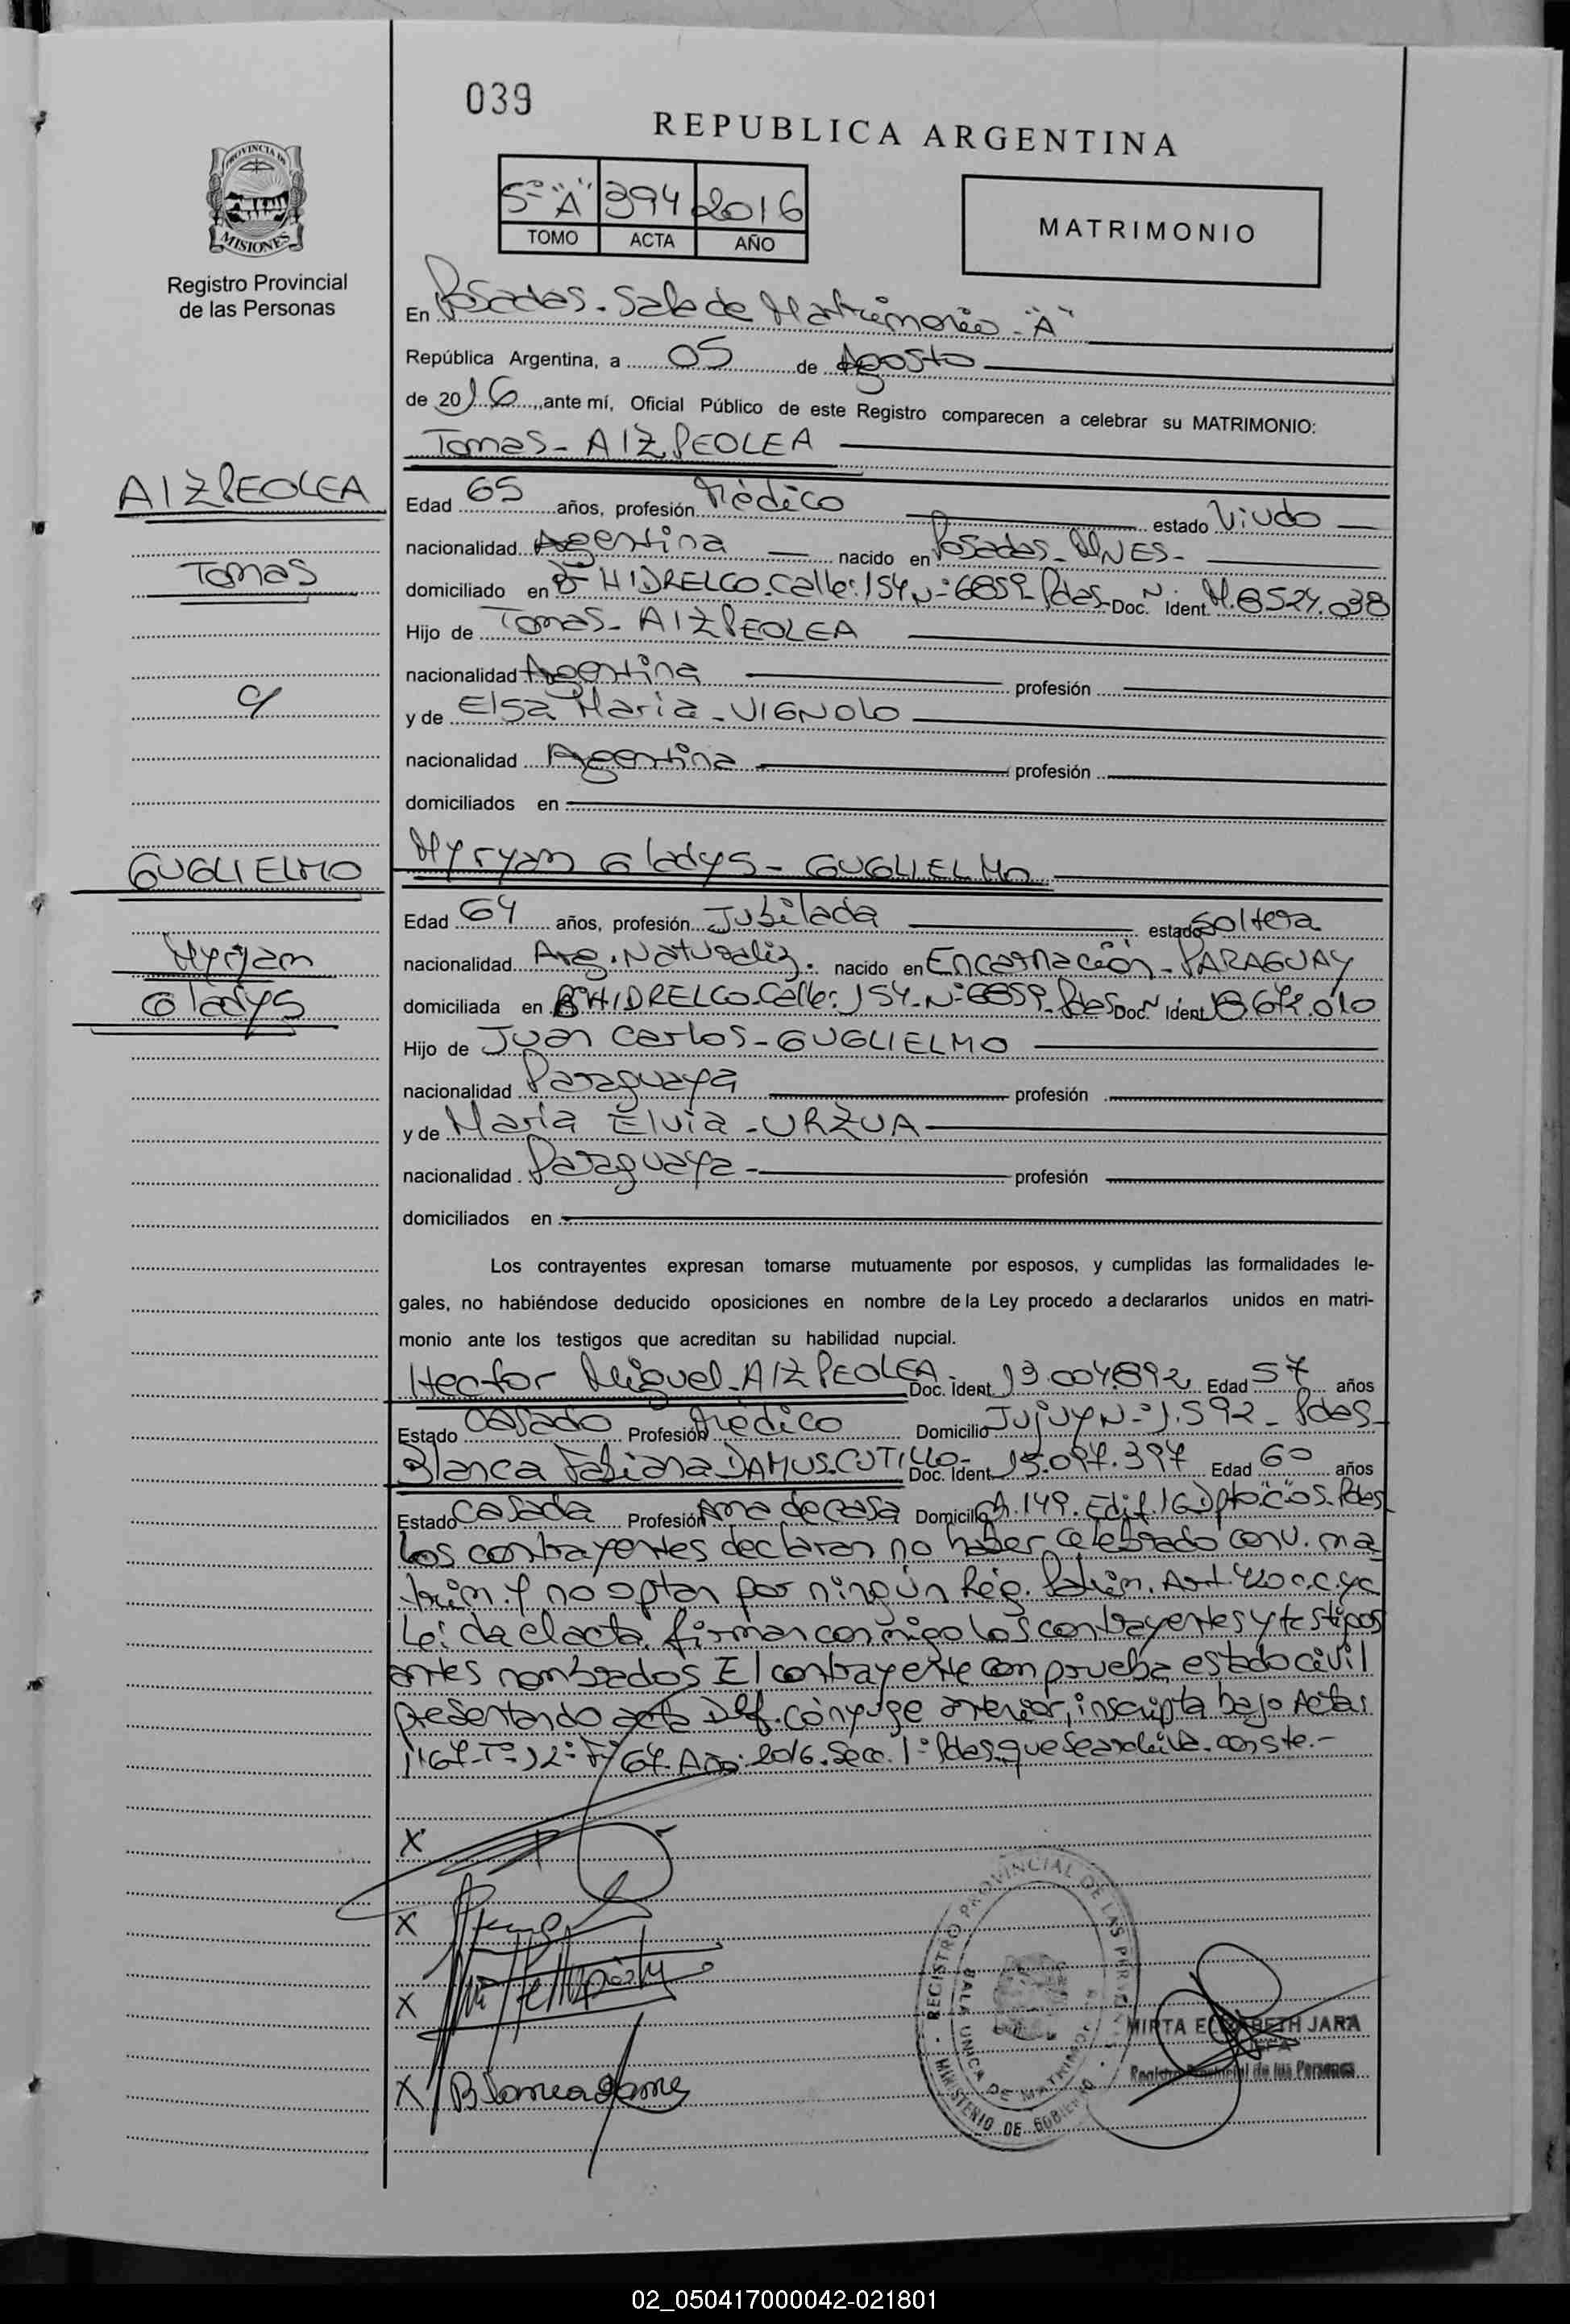 039
REPUBLICA ARGENTINA
5º "A" 394 2016
TOMO ACTA AÑO
MATRIMONIO
PROVINCIA DE
MISIONES
Registro Provincial
de las Personas
En Posadas - Sala de Matrimonio - "A"
República Argentina, a 05 de Agosto
de 2016, ante mí, Oficial Público de este Registro comparecen a celebrar su MATRIMONIO:
Tomas - AIZPEOLEA
AIZPEOLEA
Tomas
c/
GUGLIELMO
Myryam
Gladys
Edad 65 años, profesión Médico estado Viudo
nacionalidad Argentina nacido en Posadas - MNES -
domiciliado en Bº HIDRELCO - Calle: 154 Nº 6859 - Pdas - Doc. Ident. M. 8524.038
Hijo de Tomas - AIZPEOLEA
nacionalidad Argentina profesión
y de Elsa Maria - VIGNOLO
nacionalidad Argentina profesión
domiciliados en
Myryam Gladys - GUGLIELMO
Edad 64 años, profesión Jubilada estado Soltera
nacionalidad Arg. Naturaliz. nacido en Encarnación - PARAGUAY
domiciliada en Bº HIDRELCO - Calle: 154 - Nº 6859 - Pdas Doc. Ident. 18.672.010
Hijo de Juan Carlos - GUGLIELMO
nacionalidad Paraguaya profesión
y de María Elvia - URZUA
nacionalidad Paraguaya - profesión
domiciliados en
Los contrayentes expresan tomarse mutuamente por esposos, y cumplidas las formalidades le-
gales, no habiéndose deducido oposiciones en nombre de la Ley procedo a declararlos unidos en matri-
monio ante los testigos que acreditan su habilidad nupcial.
Hector Miguel - AIZPEOLEA - Doc. Ident. 13.004.892 Edad 57 años
Estado Casado Profesión Médico Domicilio Jujuy Nº 1.592 - Pdas -
Blanca Fabiana DAMUS CUTILLO - Doc. Ident. 15.097.397 Edad 60 años
Estado Casada Profesión Ama de casa Domicilio Ch. 149. Edif. 16 Dpto "C" 05. Pdas
Los contrayentes declaran no haber celebrado conv. ma
trim. y no optan por ningún Rég. Patrim. Art. 420 c.c.yc
Leída el acta, firman conmigo los contrayentes y testigos
antes nombrados El contrayente comprueba estado civil
presentando acta Def. cónyuge anterior, inscripta bajo Acta:
1167 - Tº 12º Fº 67. Año: 2016. Secc. 1º Pdas. que se archiva. conste.-
X
X
X
X Blanca
REGISTRO PROVINCIAL DE LAS PERSONAS
SALA UNICA DE MATRIMONIO
MINISTERIO DE GOBIERNO
MIRTA ELIZABETH JARA
JEFA
Registro Provincial de las Personas
02_050417000042-021801